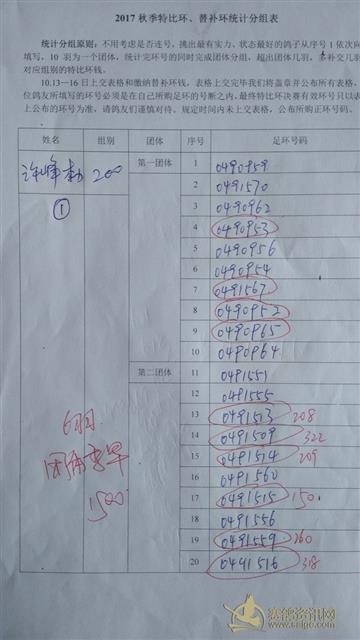 2017 秋季特比环、替补环统计分组表
统计分组原则：不用考虑是否连号，挑出最有实力、状态最好的鸽子从序号 1 依次向
填写，10 羽为一个团体，统计完环号的同时完成团体分组，超出团体几羽，多补交几羽
对应组别的特比环钱。
10.13－16 日上交表格和缴纳替补环钱，表格上交完毕我们将盖章并公布所有表格，
位鸽友所填写的环号必须是在自己所购足环的号断之内，最终特比环决赛有效环号只以表
上公布的环号为准，请鸽友们谨慎对待。规定时间内未上交表格，公布所购正环号码。
姓名 组别 团体 序号 足环号码
200 第一团体 1 0490959
2 0491570
① 3 0490962
4 0490953
5 0490956
6 0490954
7 0491567
8 0490952
9 0490965
10 0490964
第二团体 11 0491551
12 0491555
13 0491513 208
14 0491509 322
15 0491514 209
16 0491560
17 0491515 150
18 0491556
19 0491559 260
20 0491516 318
1500
赛鸽资讯网
www.saige.com